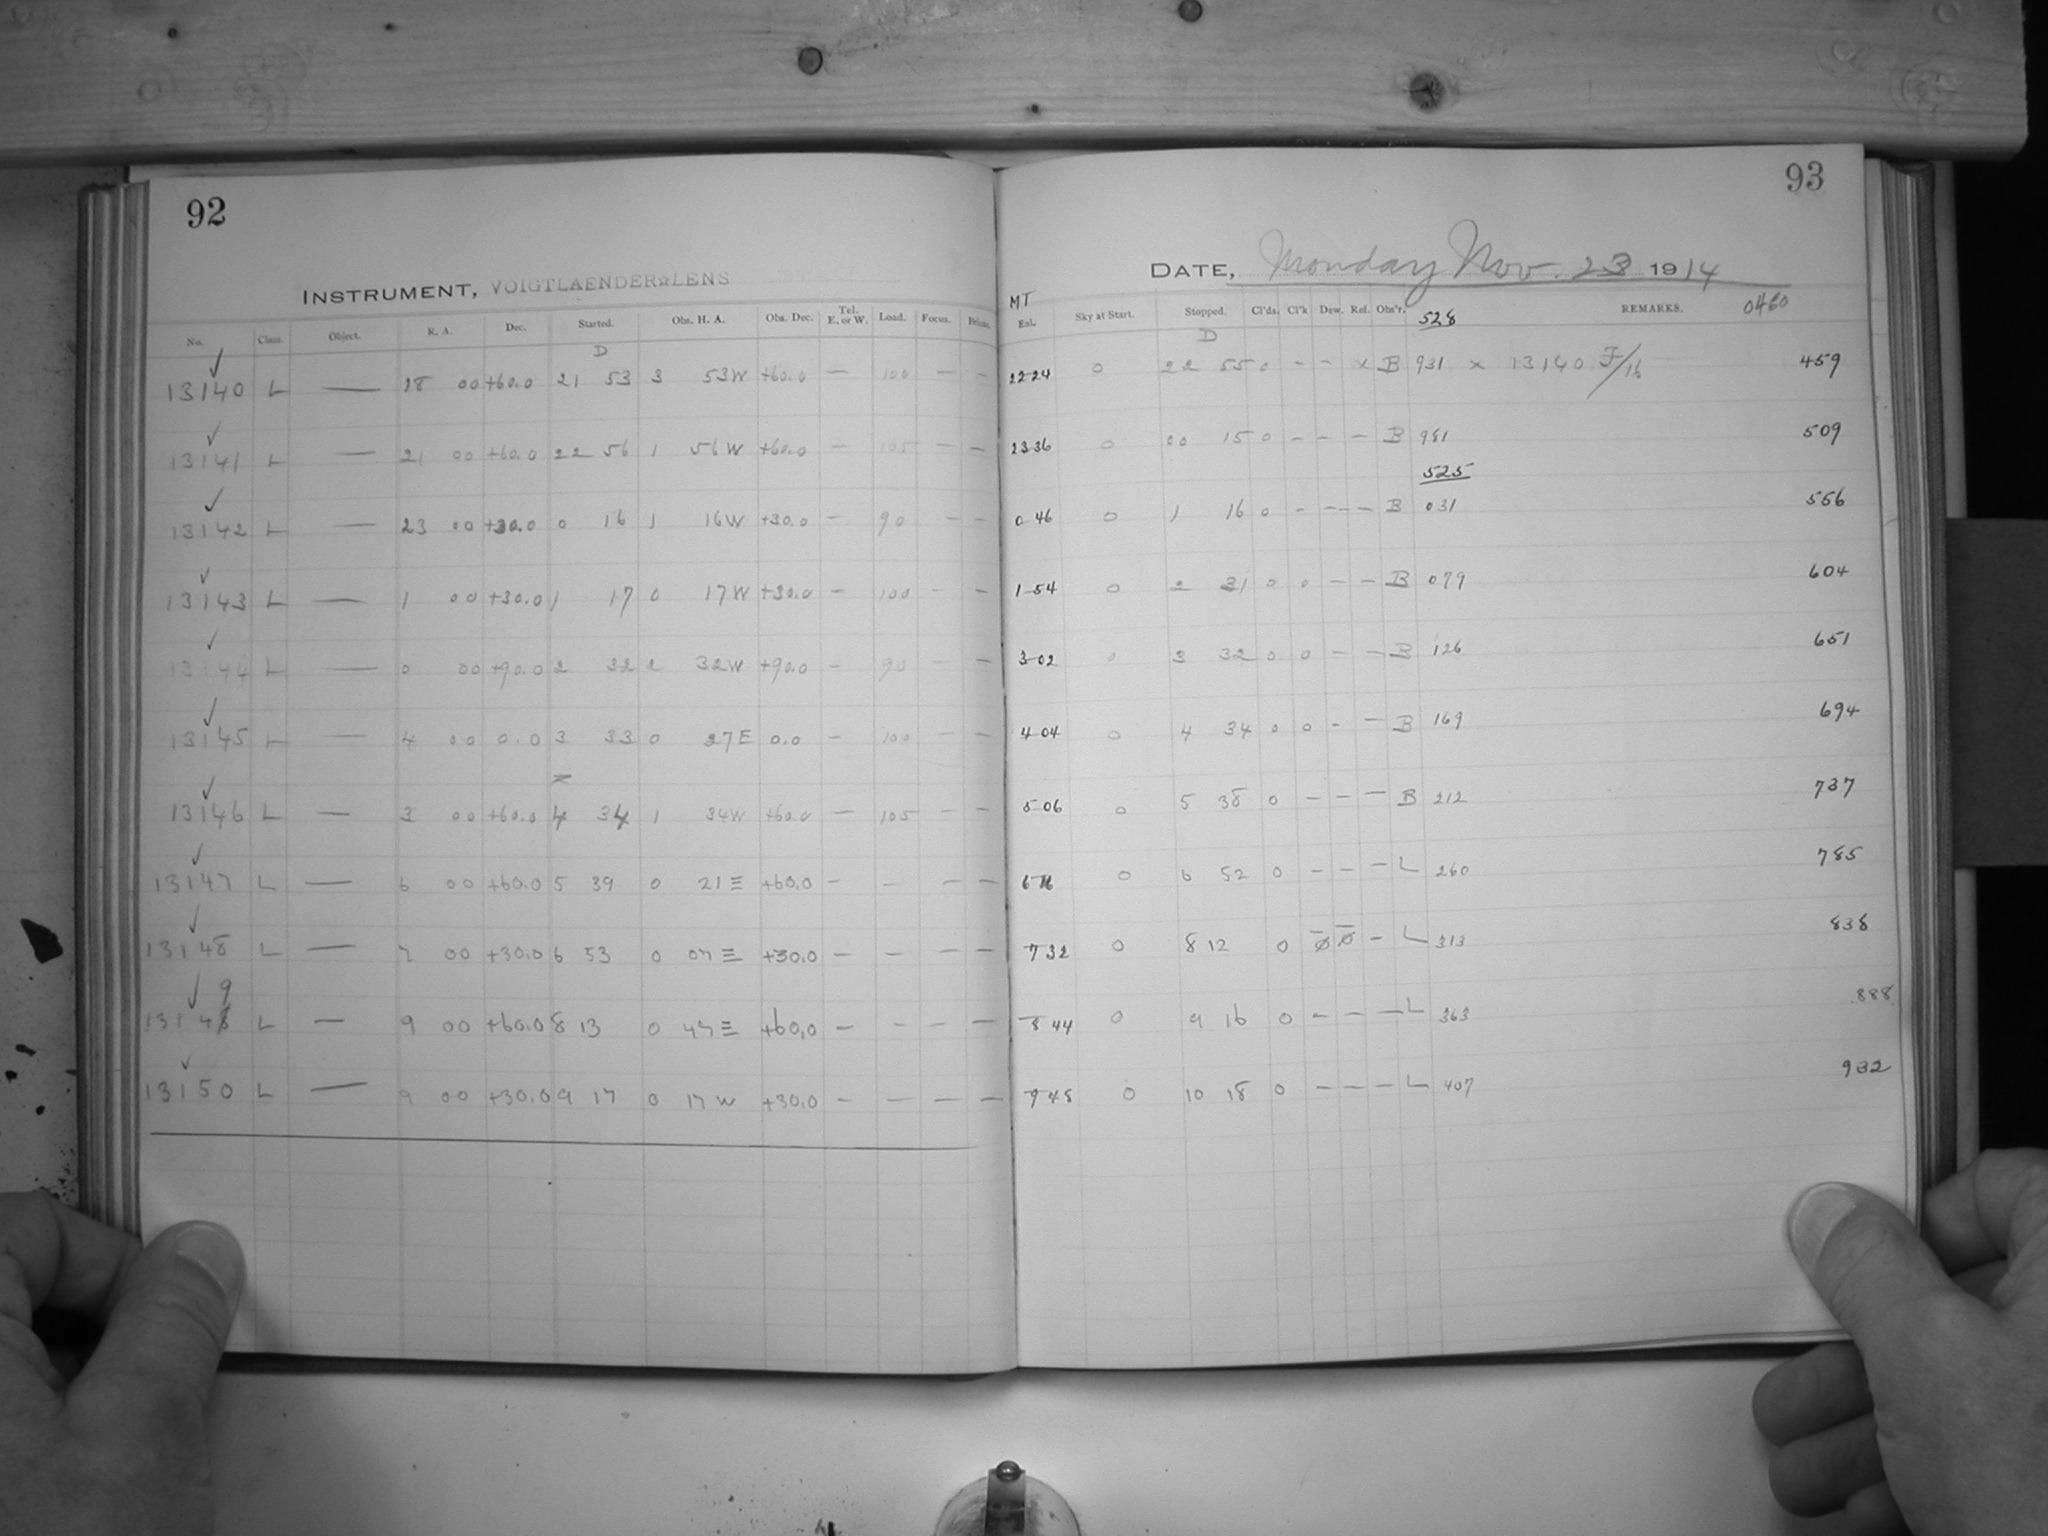 92
INSTRUMENT, VOIGTLAENDER LENS
No. Class. Object. R. A. Dec. Started. Obs. H. A. Obs. Dec. Tel. E. or W. Load. Focus.
D
13140 L — 18 00 +60.0 21 53 3 53W +60.0 — 100 — —
13141 L — 21 00 +60.0 22 56 1 56W +60.0 — 105 — —
13142 L — 23 00 +30.0 0 16 1 16W +30.0 — 90 — —
13143 L — 1 00 +30.0 1 17 0 17W +30.0 — 100 — —
13144 L — 0 00 +90.0 2 32 2 32W +90.0 — 90 — —
13145 L — 4 00 0.0 3 33 0 27E 0.0 — 100 — —
13146 L — 3 00 +60.0 4 34 1 34W +60.0 — 105 — —
13147 L — 6 00 +60.0 5 39 0 21E +60.0 — — — —
13148 L — 7 00 +30.0 6 53 0 07E +30.0 — — — —
13149 L — 9 00 +60.0 8 13 0 47E +60.0 — — — —
13150 L — 9 00 +30.0 9 17 0 17W +30.0 — — — —
93
DATE, Monday Nov. 23 1914
MT
Exl. Sky at Start. Stopped. Cl'ds. Cl'k Dew. Ref. Obs'r. 528 REMARKS. 0460
D
22 24 0 22 55 0 — — x B 931 x 13140 F/16 459
23 36 0 00 15 0 — — — B 981 509
525
0 46 0 1 16 0 — — — B 031 556
1 54 0 2 31 0 0 — — B 079 604
3 02 0 3 32 0 0 — — B 126 651
4 04 0 4 34 0 0 — — B 169 694
5 06 0 5 38 0 — — — B 212 737
6 16 0 6 52 0 — — — L 260 785
7 32 0 8 12 0 — — — L 313 838
8 44 0 9 16 0 — — — L 363 888
9 48 0 10 18 0 — — — L 407 932